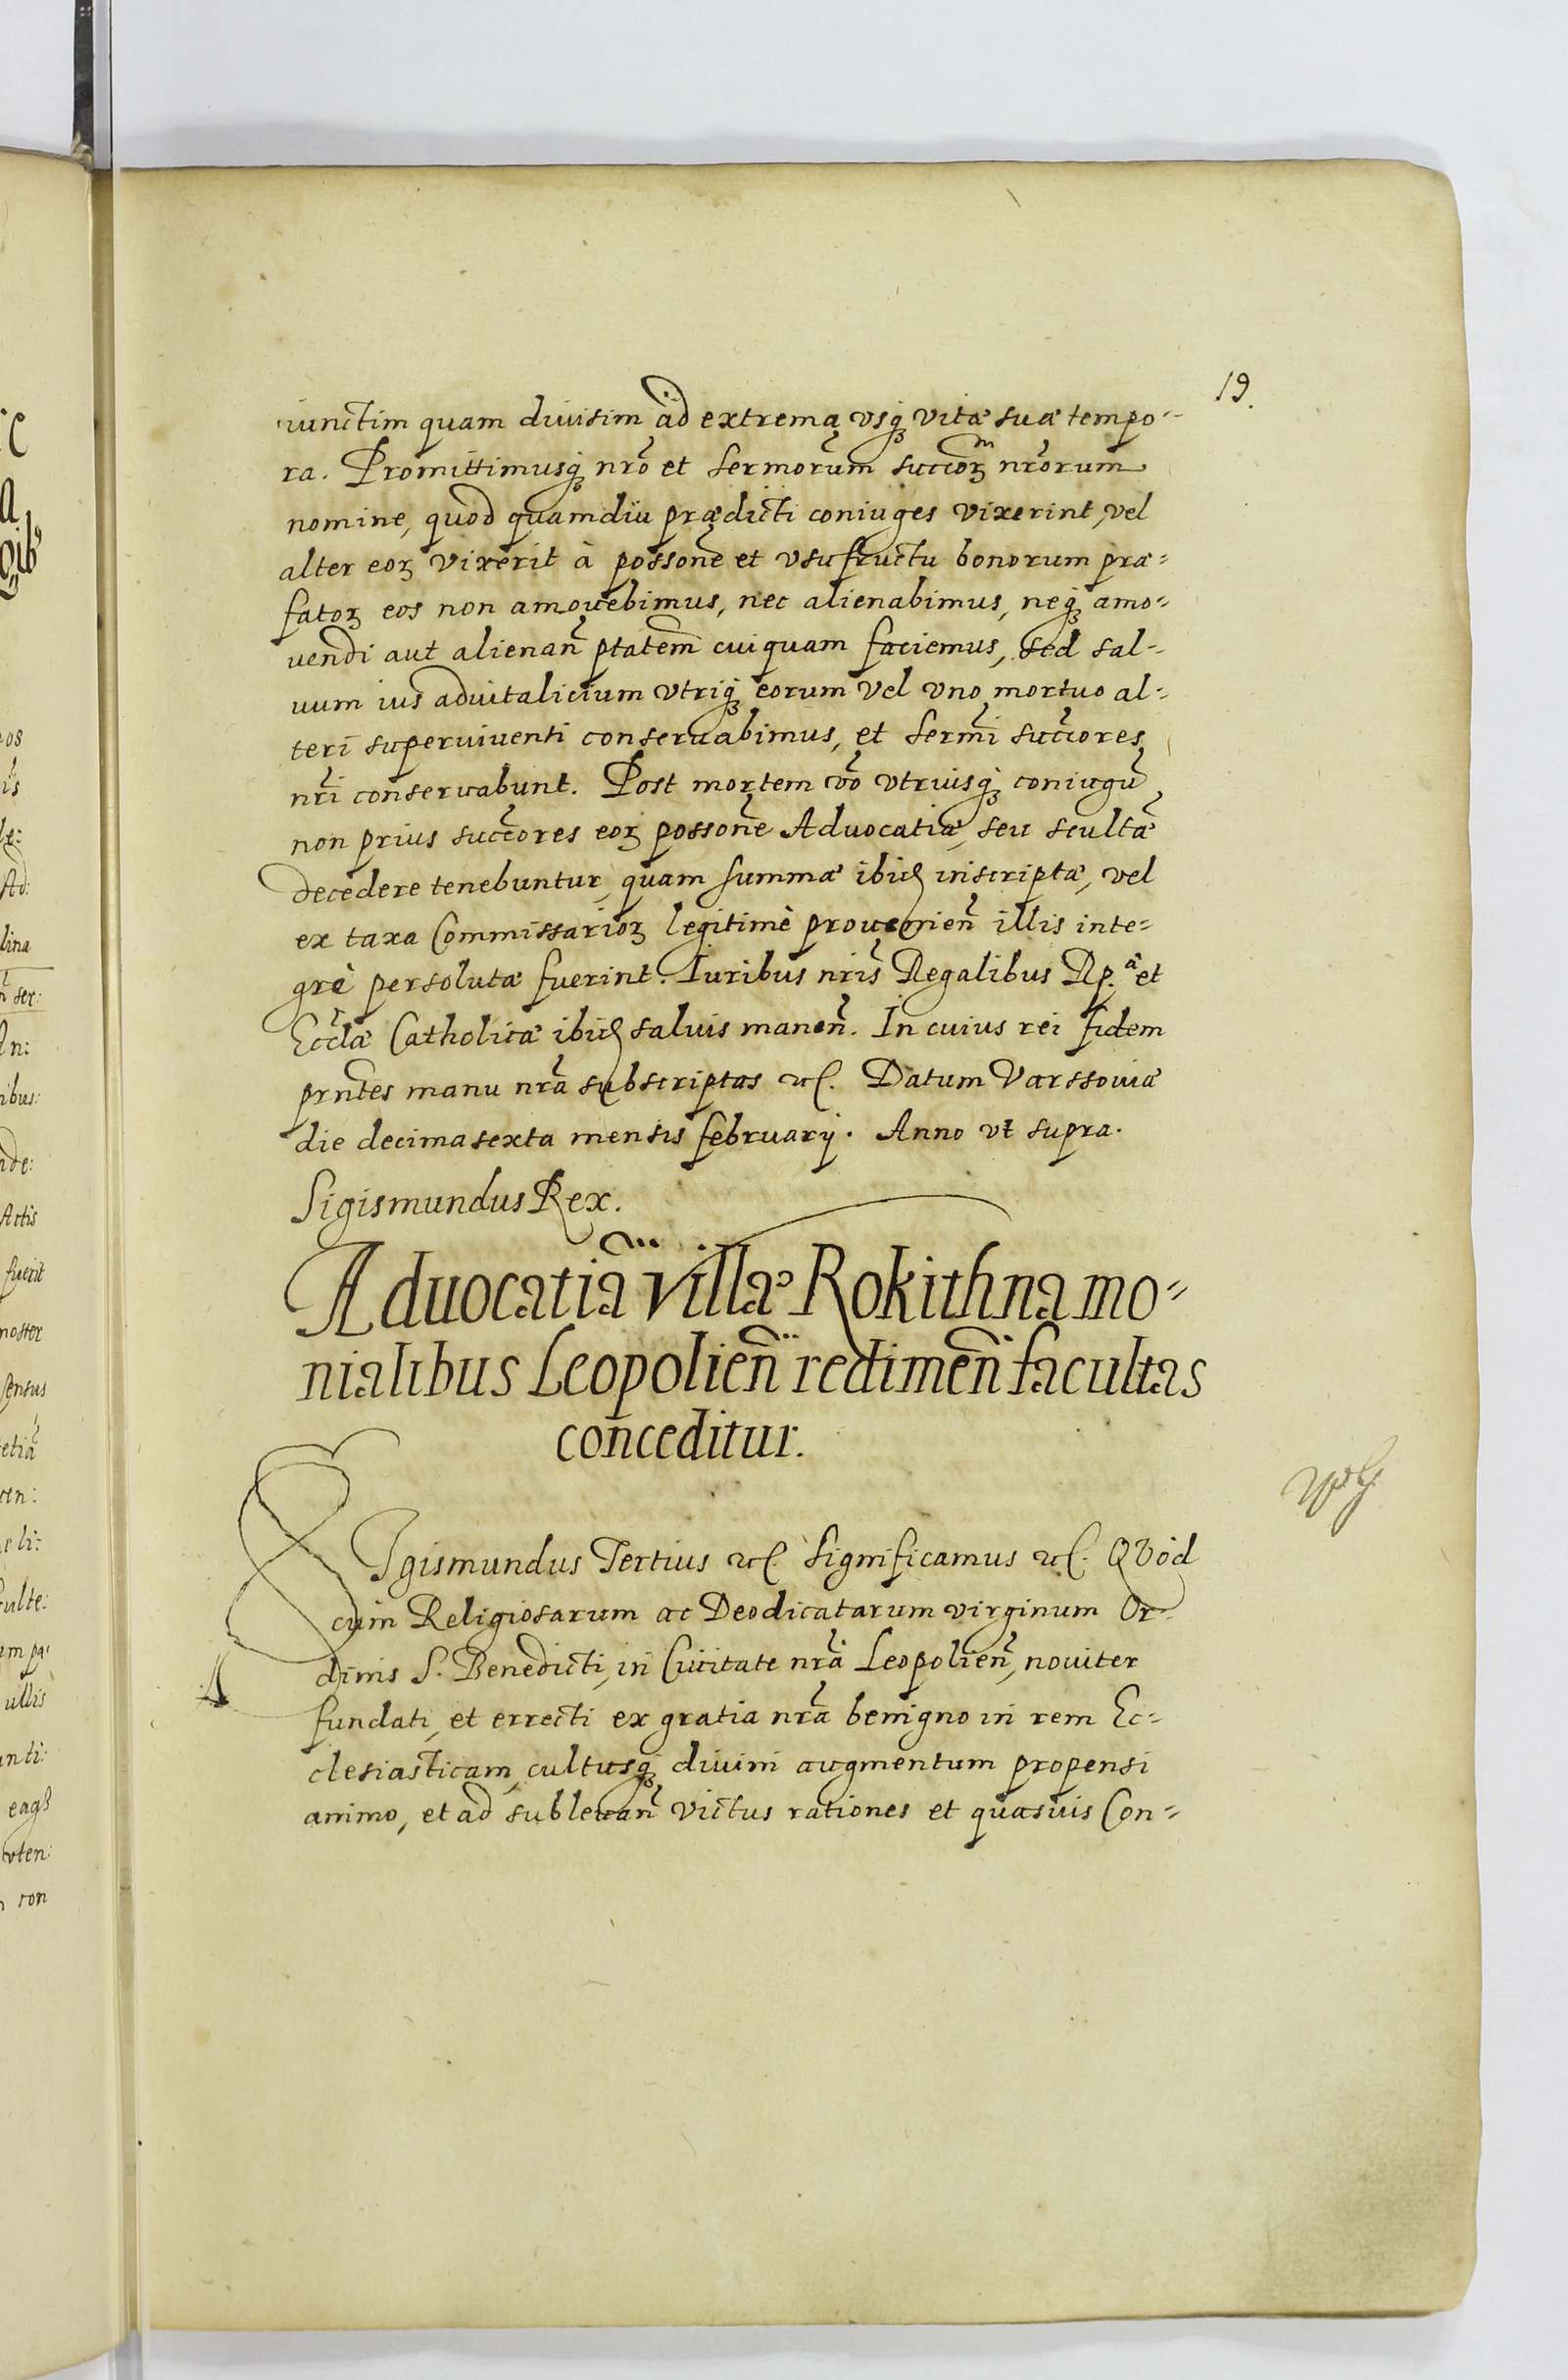 19.
iunctim quam diuisim ad extrema vsq; vitæ suæ tempo-
ra. Promittimusq; nr̃o et Sermorum succor̃ nr̃orum
nomine, quod quamdiu prædicti coniuges vixerint, vel
alter eoꝝ vixerit à possone et vsufructu bonorum præ=
fatoꝝ eos non amouebimus, nec alienabimus, neq; amo=
uendi aut alienañ ptatem cuiquam faciemus, sed sal=
uum ius aduitalicium vtriq; eorum vel vno mortuo al=
teri superuiuenti conseruabimus, et Sermi succores
nr̃i conseruabunt. Post mortem vo vtriusq; coniugũ
non prius succores eoꝝ possone Aduocatiæ, seu scultæ
decedere tenebuntur, quam summæ ibid inscriptæ, vel
ex taxa Commissarioꝝ legitimè prouenien illis inte=
grè persolutæ fuerint. Iuribus nr̃is Regalibus Rp.æ et
Ecclæ Catholicæ ibid saluis maneñ. In cuius rei fidem
prntes manu nr̃a subscriptas etc. Datum Varssouiæ
die decima sexta mensis february. Anno vt supra.
Sigismundus Rex.
Aduocatiã villæ Rokithna mo=
nialibus Leopolieñ redimeñ facultas
conceditur.
SIgismundus Tertius etc. Significamus etc. QVod
cum Religiosarum ac Deodicatarum virginum Or
dinis S. Benedicti, in Ciuitate nr̃a Leopolieñ, nouiter
fundati, et errecti ex gratia nr̃a benigno in rem Ec=
clesiasticam, cultusq; diuini augmentum propensi
animo, et ad subleuañ victus rationes et quasuis Con=